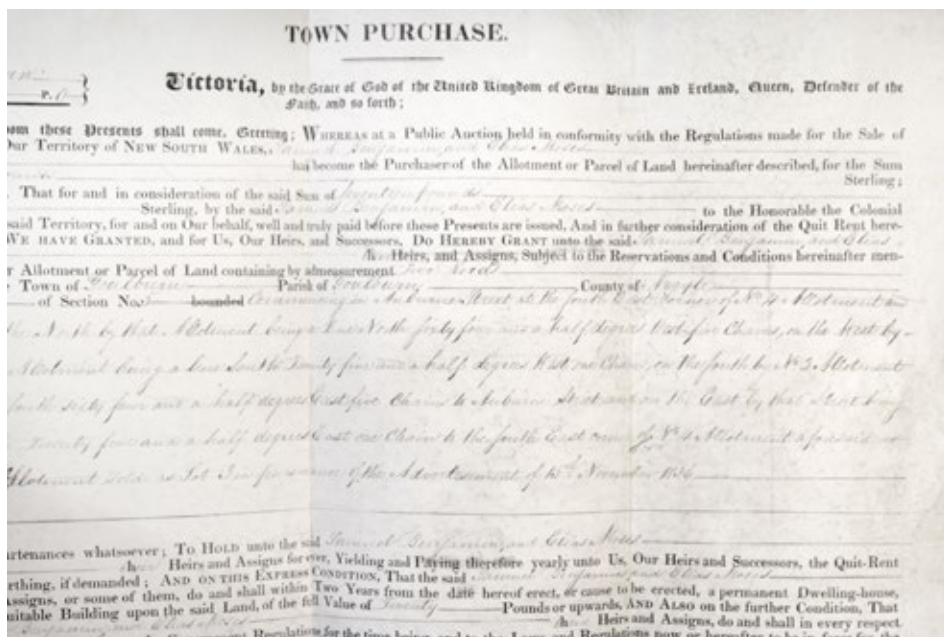 TOWN PURCHASE.
Victoria, by the Grace of God of the United Kingdom of Great Britain and Ireland, Queen, Defender of the
Faith, and so forth;
P.
om these Presents shall come, Greeting; WHEREAS at a Public Auction held in conformity with the Regulations made for the Sale of
Our Territory of NEW SOUTH WALES, Samuel Benjamin and Elias Moses
has become the Purchaser of the Allotment or Parcel of Land hereinafter described, for the Sum
Sterling;
That for and in consideration of the said Sum of Seventeen pounds
Sterling, by the said Samuel Benjamin, and Elias Moses to the Honorable the Colonial
said Territory, for and on Our behalf, well and truly paid before these Presents are issued, And in further consideration of the Quit Rent here-
WE HAVE GRANTED, and for Us, Our Heirs, and Successors, DO HEREBY GRANT unto the said Samuel Benjamin and Elias
Heirs, and Assigns, Subject to the Reservations and Conditions hereinafter men-
r Allotment or Parcel of Land containing by admeasurement Two Roods
Town of Goulburn Parish of Goulburn County of Argyle
of Section No. bounded Commencing in Auburn Street at the South East corner of No 4 Allotment
the North by that Allotment being a line North sixty four and a half degrees West five Chains, on the West by
Allotment being a line South Twenty five and a half degrees West one Chain, on the South by No 2 Allotment
South sixty four and a half degrees East five Chains to Auburn Street and on the East by that Street being
Twenty five and a half degrees East one Chain to the South East corner of No 4 Allotment aforesaid
Allotment sold as Lot 3 in pursuance of the Advertisement of 15th November 1836
rtenances whatsoever; TO HOLD unto the said Samuel Benjamin, and Elias Moses
Heirs and Assigns for ever, Yielding and Paying therefore yearly unto Us, Our Heirs and Successors, the Quit-Rent
rthing, if demanded; AND ON THIS EXPRESS CONDITION, That the said Samuel Benjamin, and Elias Moses
Assigns, or some of them, do and shall within Two Years from the date hereof erect, or cause to be erected, a permanent Dwelling-house,
uitable Building upon the said Land, of the full Value of Twenty Pounds or upwards, AND ALSO on the further Condition, That
Benjamin and Elias Moses Heirs and Assigns, do and shall in every respect
Government Regulations for the time being, and to the Laws and Regulations now or hereafter to be in force in the